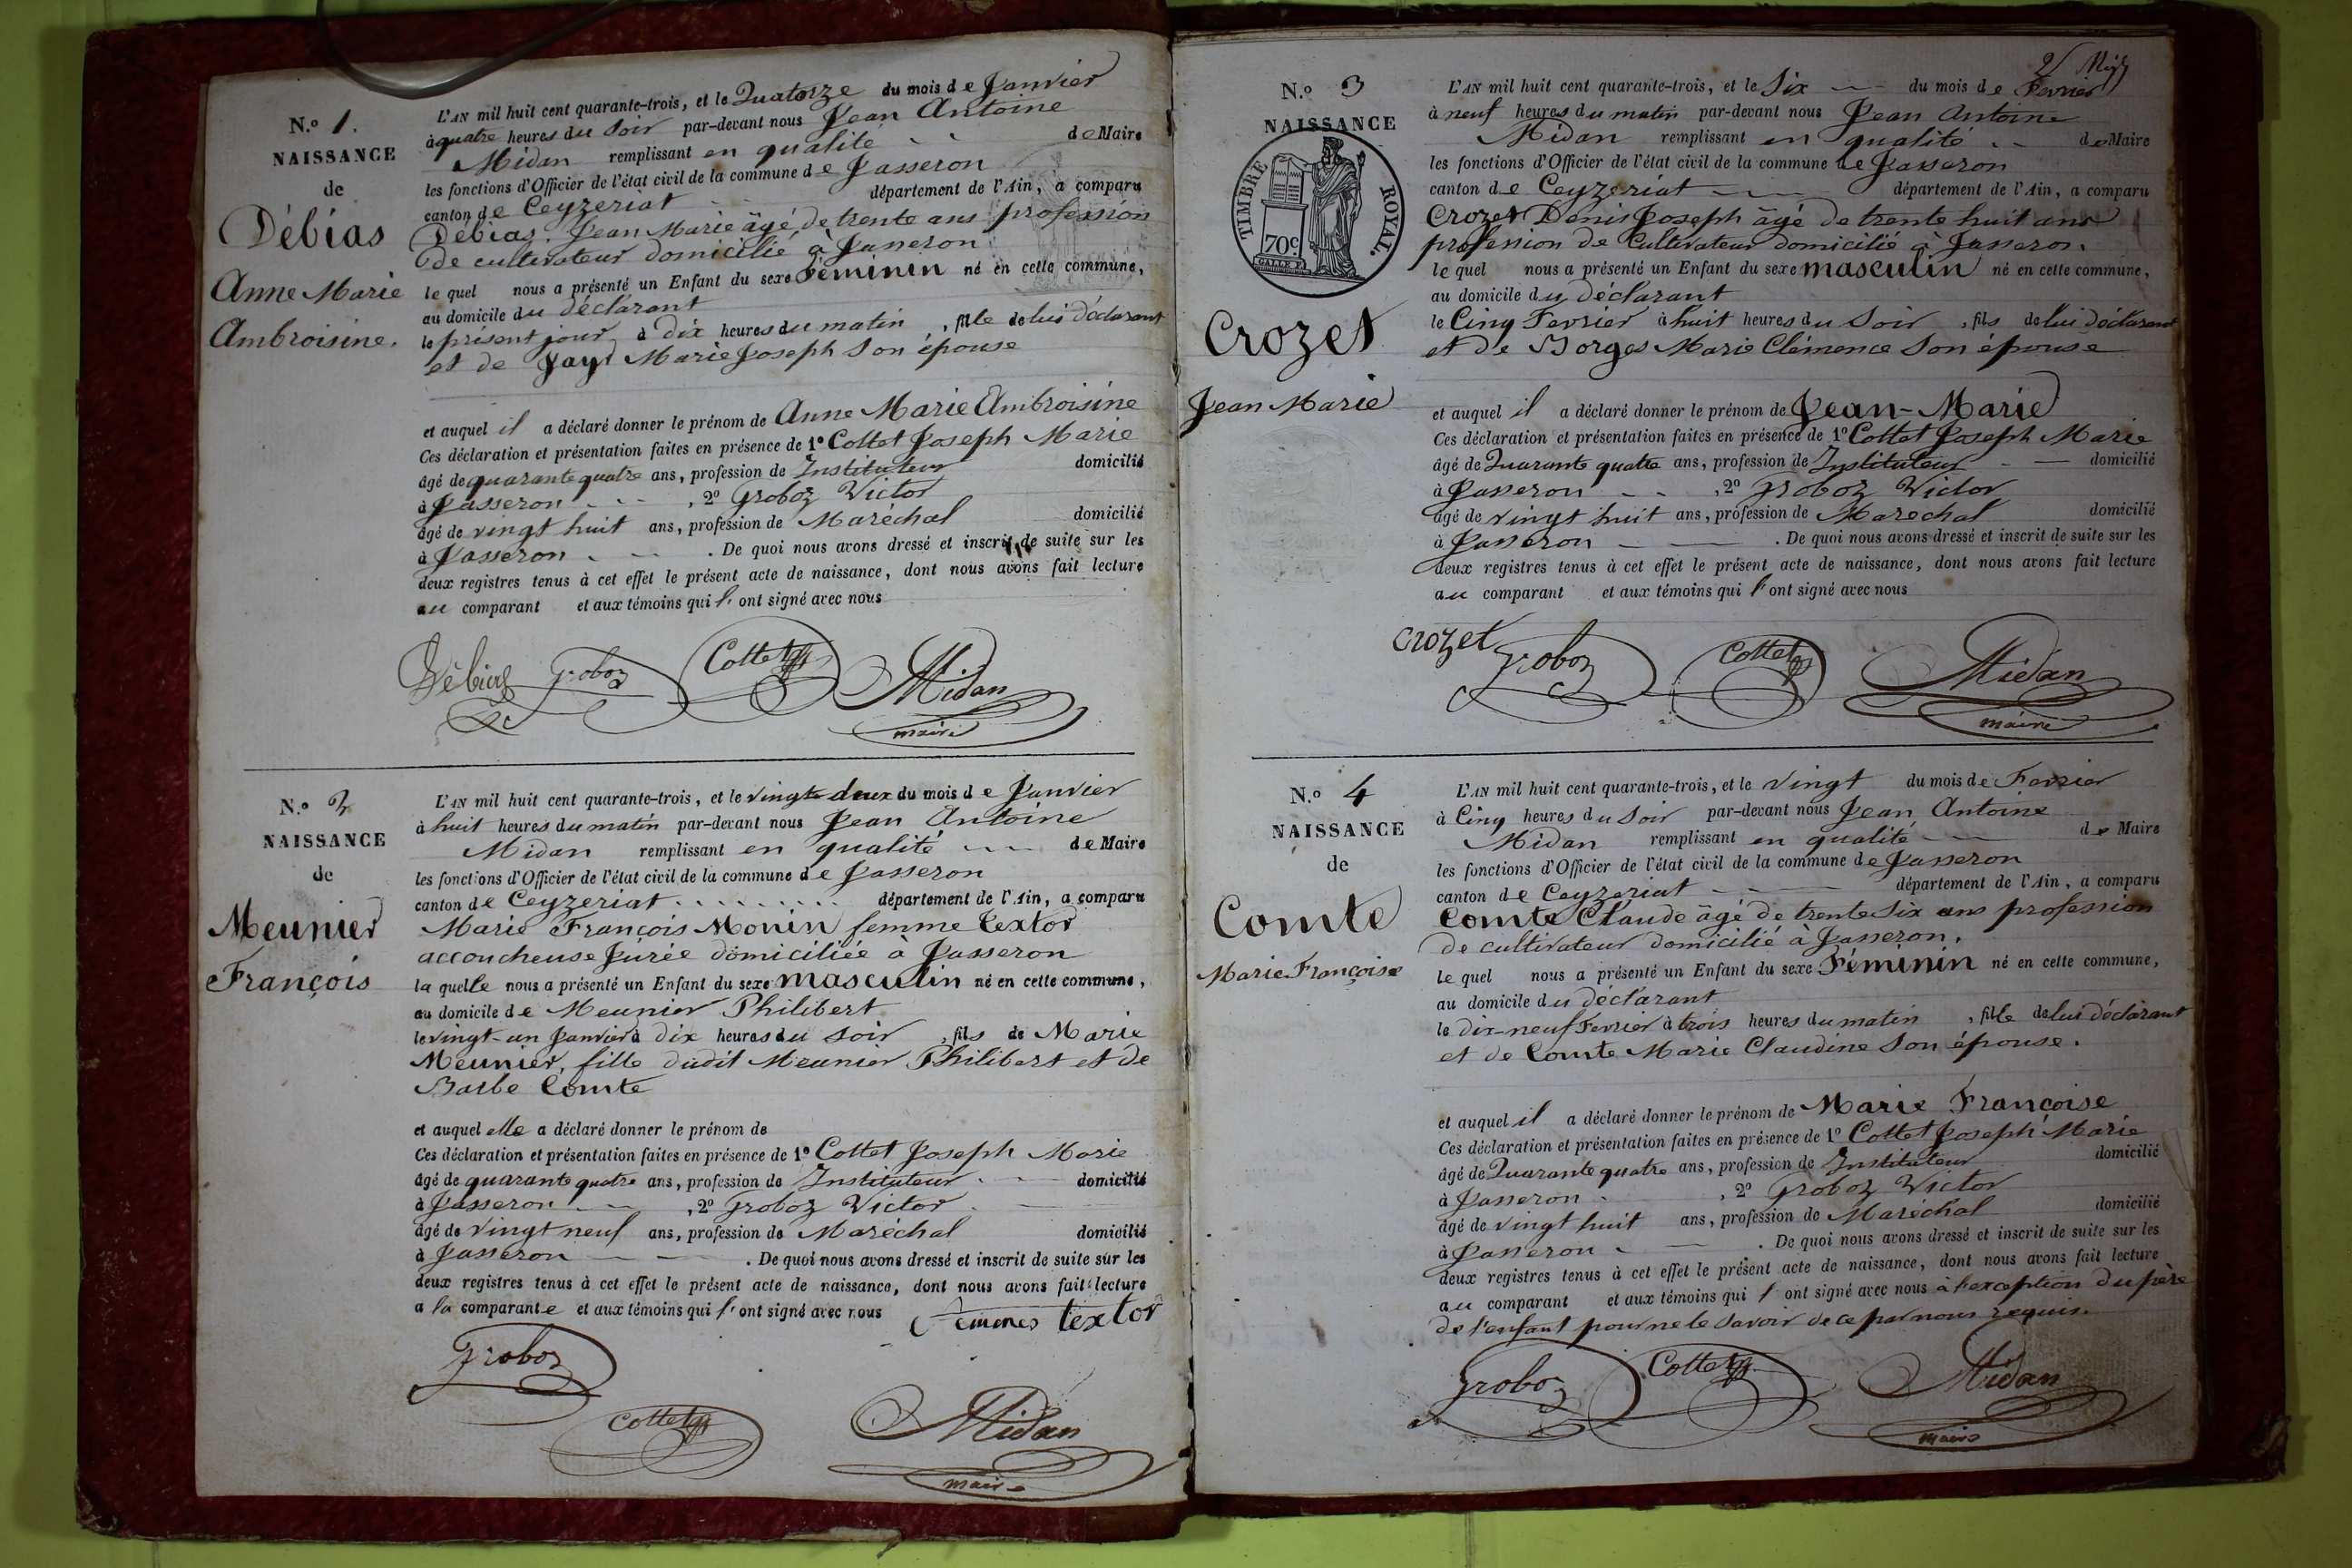 N.º 1.
NAISSANCE
de
Débias
Anne Marie
Ambroisine.
L'AN mil huit cent quarante-trois, et le Quatorze du mois de Janvier
à quatre heures du Soir par-devant nous Jean Antoine
Midan remplissant en qualité de Maire
les fonctions d'Officier de l'état civil de la commune de Jasseron
canton de Ceyzeriat département de l'Ain, a comparu
Débias Jean Marie âgé de trente ans profession
de cultivateur domicilié à Jasseron
le quel nous a présenté un Enfant du sexe Féminin né en cette commune,
au domicile du déclarant
le présent jour à Dix heures du matin, fille de lui déclarant
et de Marie Joseph Son épouse
et auquel il a déclaré donner le prénom de Anne Marie Ambroisine
Ces déclaration et présentation faites en présence de 1º Cottet Joseph Marie
âgé de quarante quatre ans, profession de Instituteur domicilié
à Jasseron, 2º Groboz Victor
âgé de vingt huit ans, profession de Maréchal domicilié
à Jasseron. De quoi nous avons dressé et inscrit de suite sur les
deux registres tenus à cet effet le présent acte de naissance, dont nous avons fait lecture
au comparant et aux témoins qui l'ont signé avec nous
Débias Groboz Cottet Midan
maire
N.º 2
NAISSANCE
de
Meunier
François
L'AN mil huit cent quarante-trois, et le vingt-deux du mois de Janvier
à huit heures du matin par-devant nous Jean Antoine
Midan remplissant en qualité de Maire
les fonctions d'Officier de l'état civil de la commune de Jasseron
canton de Ceyzeriat département de l'Ain, a comparu
Marie François Monin femme Textor
accoucheuse Jurée domiciliée à Jasseron
la quelle nous a présenté un Enfant du sexe masculin né en cette commune,
au domicile de Meunier Philibert
le vingt-un Janvier à Dix heures du soir, fils de Marie
Meunier, fille dudit Meunier Philibert et de
Barbe Comte
et auquel elle a déclaré donner le prénom de
Ces déclaration et présentation faites en présence de 1º Cottet Joseph Marie
âgé de quarante quatre ans, profession de Instituteur domicilié
à Jasseron, 2º Groboz Victor
âgé de vingt neuf ans, profession de Maréchal domicilié
à Jasseron. De quoi nous avons dressé et inscrit de suite sur les
deux registres tenus à cet effet le présent acte de naissance, dont nous avons fait lecture
a la comparante et aux témoins qui l'ont signé avec nous textor
Groboz
Cottet Midan
maire
N.º 3
NAISSANCE
TIMBRE ROYAL.
70c.
Crozet
Jean Marie
L'AN mil huit cent quarante-trois, et le Six du mois de Fevrier
à neuf heures du matin par-devant nous Jean Antoine
Midan remplissant en qualité de Maire
les fonctions d'Officier de l'état civil de la commune de Jasseron
canton de Ceyzeriat département de l'Ain, a comparu
Crozet Denis Joseph âgé de trente huit ans
profession de Cultivateur domicilié à Jasseron.
le quel nous a présenté un Enfant du sexe masculin né en cette commune,
au domicile du déclarant
le Cinq Fevrier à huit heures du Soir, fils de lui déclarant
et de Borges Marie Clémence Son épouse
et auquel il a déclaré donner le prénom de Jean-Marie
Ces déclaration et présentation faites en présence de 1º Cottet Joseph Marie
âgé de Quarante quatre ans, profession de Instituteur domicilié
à Jasseron, 2º Groboz Victor
âgé de vingt huit ans, profession de Maréchal domicilié
à Jasseron. De quoi nous avons dressé et inscrit de suite sur les
deux registres tenus à cet effet le présent acte de naissance, dont nous avons fait lecture
au comparant et aux témoins qui l'ont signé avec nous
crozet Groboz Cottet Midan
maire
N.º 4
NAISSANCE
de
Comte
Marie Françoise
L'AN mil huit cent quarante-trois, et le vingt du mois de Fevrier
à Cinq heures du Soir par-devant nous Jean Antoine
Midan remplissant en qualité de Maire
les fonctions d'Officier de l'état civil de la commune de Jasseron
canton de Ceyzeriat département de l'Ain, a comparu
Comte Claude âgé de trente Six ans profession
de cultivateur domicilié à Jasseron.
le quel nous a présenté un Enfant du sexe Féminin né en cette commune,
au domicile du déclarant
le dix-neuf Fevrier à trois heures du matin, fille de lui déclarant
et de Comte Marie Claudine Son épouse.
et auquel il a déclaré donner le prénom de Marie Françoise
Ces déclaration et présentation faites en présence de 1º Cottet Joseph Marie
âgé de Quarante quatre ans, profession de Instituteur domicilié
à Jasseron, 2º Groboz Victor
âgé de vingt huit ans, profession de Maréchal domicilié
à Jasseron. De quoi nous avons dressé et inscrit de suite sur les
deux registres tenus à cet effet le présent acte de naissance, dont nous avons fait lecture
au comparant et aux témoins qui l'ont signé avec nous à l'exception du père
de l'enfant pour ne le savoir de ce par nous requis.
Groboz Cottet Midan
maire